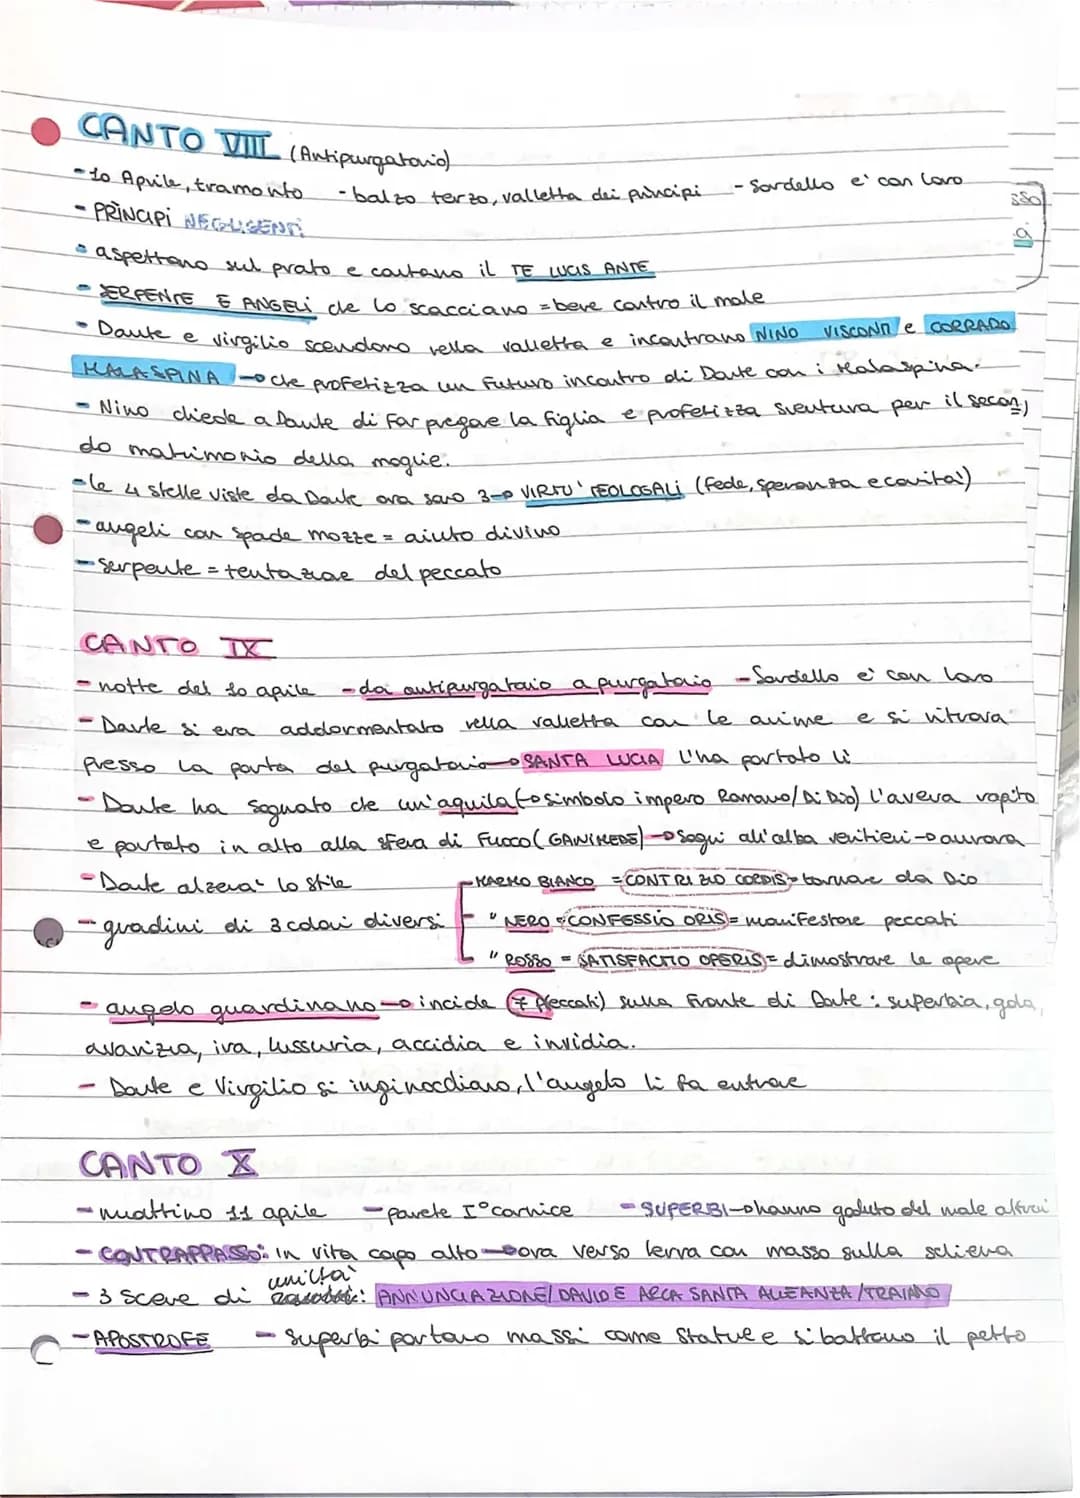 CANTO VIII (Antipurgatorio)
-10 Aprile, tramonto -balzo terzo, valletta dei principi -Sordello e' con loro
-PRINCIPI NEGLIGENTI
- aspettano sul prato e cantano il TE LUCIS ANTE
-SERPENTE E ANGELI che lo scacciano = bene contro il male
- Dante e virgilio scendono nella valletta e incontrano NINO VISCONTI e CORRADO
MALASPINA → che profetizza un futuro incontro di Dante con i Malaspina.
- Nino chiede a Dante di far pregare la figlia e profetizza sventura per il secon
do matrimonio della moglie.
-le 4 stelle viste da Dante ora sono 3→ VIRTU' TEOLOGALI (fede, speranza e carita')
-angeli con spade mozze = aiuto divino
-Serpente = tentazione del peccato
CANTO IX
-notte del 10 aprile -da antipurgatorio a purgatorio -Sordello e' con loro
-Dante si era addormentato nella valletta con le anime e si ritrova
presso la porta del purgatorio→SANTA LUCIA l'ha portato lì
-Dante ha sognato che un'aquila (→simbolo impero Romano/Di Dio) l'aveva rapito
e portato in alto alla sfera di fuoco (GANIMEDE)→Sogni all'alba veritieri→aurora
-Dante alzera' lo stile
-gradini di 3 colori diversi
-MARMO BIANCO = CONTRITIO CORDIS= tornare da Dio
- " NERO = CONFESSIO ORIS = manifestare peccati
" ROSSO = SATISFACTIO OPERIS = dimostrare le opere
- angelo guardinano→incide (7 P(eccati) sulla fronte di Dante: superbia, gola,
avarizia, ira, lussuria, accidia e invidia.
- Dante e Virgilio si inginocchiano, l'angelo li fa entrare
CANTO X
-mattino 11 aprile -parete I° cornice -SUPERBI→hanno goduto del male altrui
-CONTRAPPASSO: in vita capo alto→ora verso terra con masso sulla schiena
umilta'
- 3 scene di : ANNUNCIAZIONE/ DAVID E ARCA SANTA ALLEANZA / TRAIANO
-APOSTROFE - superbi portano massi come statue e si battono il petto